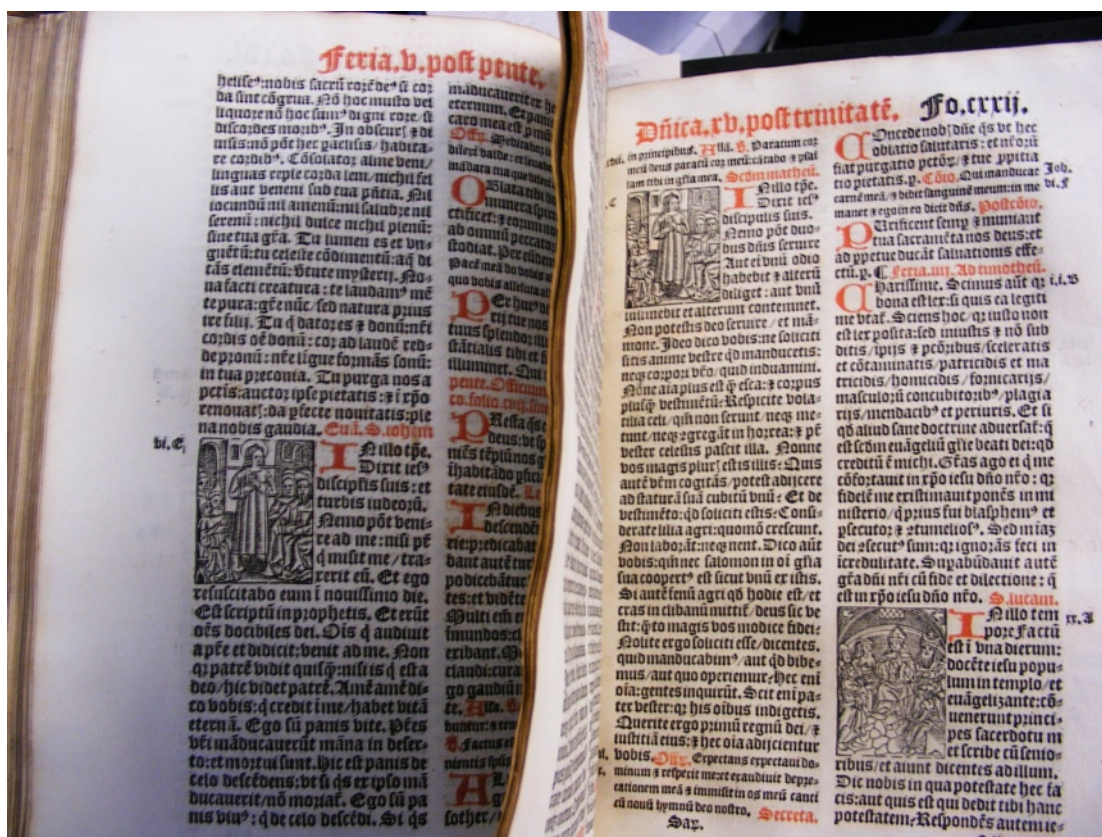 Feria.v.post pente.
helise⁹:nobis sacrū rorē de⁹ si cor
da sint cōgrua. Nō hoc musto vel
liquore nō hoc sum⁹ digni rore/si
discordes morib⁹. In obscur⁊ ⁊ di
uisis:nō pōt hec paclitus/habita-
re cordib⁹. Cōsolator alme veni/
linguas reple corda leni/nichil fel
lis aut veneni sub tua p̄ntia. Nil
iocundū nil amenū:nil salubre nil
serenū:nichil dulce nichil plenū:
sine tua gr̄a. Tu lumen es et vn-
guētū:tu celeste cōdimentū:aq̄ di
tās elemētū:v̄tute mysterij. No-
na facti creatura:te laudam⁹ mē
te pura:gr̄e nūc/sed natura prius
ire filij. Tu q̄ dator es ⁊ donū:nr̄i
cordis oē bonū:cor ad laudē red-
de pronū:nr̄e ligue formās sonū:
in tua preconia. Tu purga nos a
pctīs:auctor ipse pietatis:⁊ ī xp̄o
renouat⁊:da p̄fecte nouitatis:ple
na nobis gaudia. Euā. S. iohem
vi.E
IN illo tp̄e.
Dixit ies⁹
discipĺis suis:et
turbis iudeorū.
Nemo pōt veni-
re ad me:nisi pr̄
q̄ misit me/tra-
xerit eū. Et ego
resuscitabo eum ī nouissimo die.
Est scriptū in prophetis. Et erūt
oēs docibiles dei. Ois q̄ audiuit
a pr̄e et didicit:venit ad me. Non
q̄ patrē vidit quisq̄:nisi is q̄ est a
deo/hic videt patrē. Amē amē di-
co vobis:q̄ credit ī me/habet vitā
eternā. Ego sū panis vite. Pr̄es
vr̄i māducauerūt māna in deser-
to:et mortui sunt. Hic est panis de
celo descēdens:vt si q̄s ex ipso mā
ducauerit/nō moriat̄. Ego sū pa
nis viu⁹:q̄ de celo descēdi. Si q̄s
maducauerit ex
eternum. Et pani
caro mea est p mūd
Offm. Meditabor
dilexi valde:et leuabo
OBlata tibi
munera
ctificet:et corum no
ab omniū peccato
stodiat. Per eūdem
Pacē meā do vobis
quo vobis alleluia
PEr hui⁹
tuus splendor
stātialis tibi et
illuminet. Qui
pente. Officium
co. folio.
PResta q̄s
deus:vt
tate eiusdē.
IN diebus
descendēn
rie:predicabat
bant autē tur
po dicebātur
tes:et vidēte
Multi eīn
īmundos:cl
exibant. M
claudi:cura
go gaudiū
te.
Factus
nientis
AL
sother/
Dn̄ica.xv.post trinitatē. Fo.cxxij.
in principibus. Alla. V. Paratum cor
meū deus paratū cor meū:cātabo ⁊ psal
lam tibi in gl̄ia mea. Scdm matheū.
.C
IN illo tp̄e.
Dixit ies⁹
discipulis suis.
Nemo pōt duo-
bus dn̄is seruire
Aut eī vnū odio
habebit ⁊ alterū
diliget:aut vnū
sustinebit et alterum contemnet.
Non potestis deo seruire/et mā-
mone. Ideo dico vobis:ne soliciti
sitis anime vestre qd manducetis:
neq̄ corpori vr̄o/quid induamini.
Nōne aīa plus est q̄ esca:⁊ corpus
plusq̄ vestimētū:Respicite vola-
tilia celi/qm̄ non serunt/neq̄ me-
tunt/neq̄ ↄgregāt in horrea:⁊ pr̄
vester celestis pascit illa. Nonne
vos magis plur⁊ estis illis:Quis
autē vr̄m cogitās/potest adijcere
ad staturā suā cubitū vnū:Et de
vestimēto:qd soliciti estis:Consi-
derate lilia agri:quomō crescunt.
Non laborāt:neq̄ nent. Dico aūt
vobis:qm̄ nec salomon in oī gl̄ia
sua coopert⁹ est sicut vnū ex istis.
Si autē fenū agri qd hodie est/et
cras in clibanū mittit̄/deus sic ve
stit:q̄to magis vos modice fidei:
Nolite ergo soliciti esse/dicentes.
quid manducabim⁹/aut qd bibe-
mus/aut quo operiemur:Hec enī
oīa:gentes inquirūt. Scit enī pa-
ter vester:q̄ his oībus indigetis.
Querite ergo primū regnū dei/⁊
iustitiā eius:⁊ hec oīa adijcientur
vobis. Offm. Expectans expectaui do-
minum ⁊ respexit me:et exaudiuit depre-
cationem meā ⁊ immisit in os meū canti
cū nouū hymnū deo nostro. Secreta.
Sax.
COncede nob⁊ dn̄e q̄s vt hec
oblatio salutaris:et nr̄orū
fiat purgatio pctōr⁊/⁊ tue ppitia
tio pietatis.p. Cōio. Qui manducat
carnē meā/⁊ bibit sanguinē meum:in me
manet ⁊ ego in eo dicit dn̄s. Postcōio.
Job.
vi.f
PUrificent semp ⁊ muniant
tua sacramēta nos deus:et
ad ppetue ducāt saluationis effe-
ctū.p. ¶ Feria.iiij. Ad timotheū.
CHarissime. Scimus aūt q̄
bona est lex:si quis ea legiti
i.i.B
me vtat̄. Sciens hoc/q̄ iusto non
est lex posita:sed iniustis ⁊ nō sub
ditis/ipijs ⁊ pcōribus/sceleratis
et cōtaminatis/patricidis et ma
tricidis/homicidis/fornicarijs/
masculorū concubitorib⁹/plagia
rijs/mendacib⁹ et periuris. Et si
qd aliud sane doctrine aduersat̄:q̄
est scdm euāgeliū gl̄ie beati dei:qd
creditū ē michi. Gr̄as ago ei q̄ me
cōfortauit in xp̄o iesu dn̄o nr̄o:q̄
fidelē me existimauit ponēs in mi
nisterio/q̄ prius fui blasphem⁹ et
psecutor:⁊ ↄtumelios⁹. Sed miāȝ
dei ↄsecut⁹ sum:q̄ ignorās feci in
īcredulitate. Supabūdauit autē
gr̄a dn̄i nr̄i cū fide et dilectione:q̄
est in xp̄o iesu dn̄o nr̄o. S. lucam.
xx.A
IN illo tem
pore Factū
est ī vna dierum:
docēte iesu popu-
lum in templo/et
euāgelizante:cō-
uenerunt princi-
pes sacerdotū
et scribe cū senio-
ribus/et aiunt dicentes ad illum.
Dic nobis in qua potestate hec fa
cis:aut quis est qui dedit tibi hanc
potestatem:Respondēs autem ie-